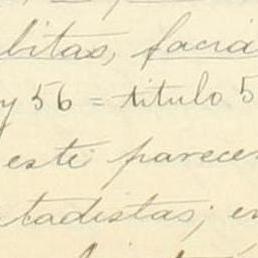 bitas, facia
y 56 = titulo 5
este parecer
tadistas; e